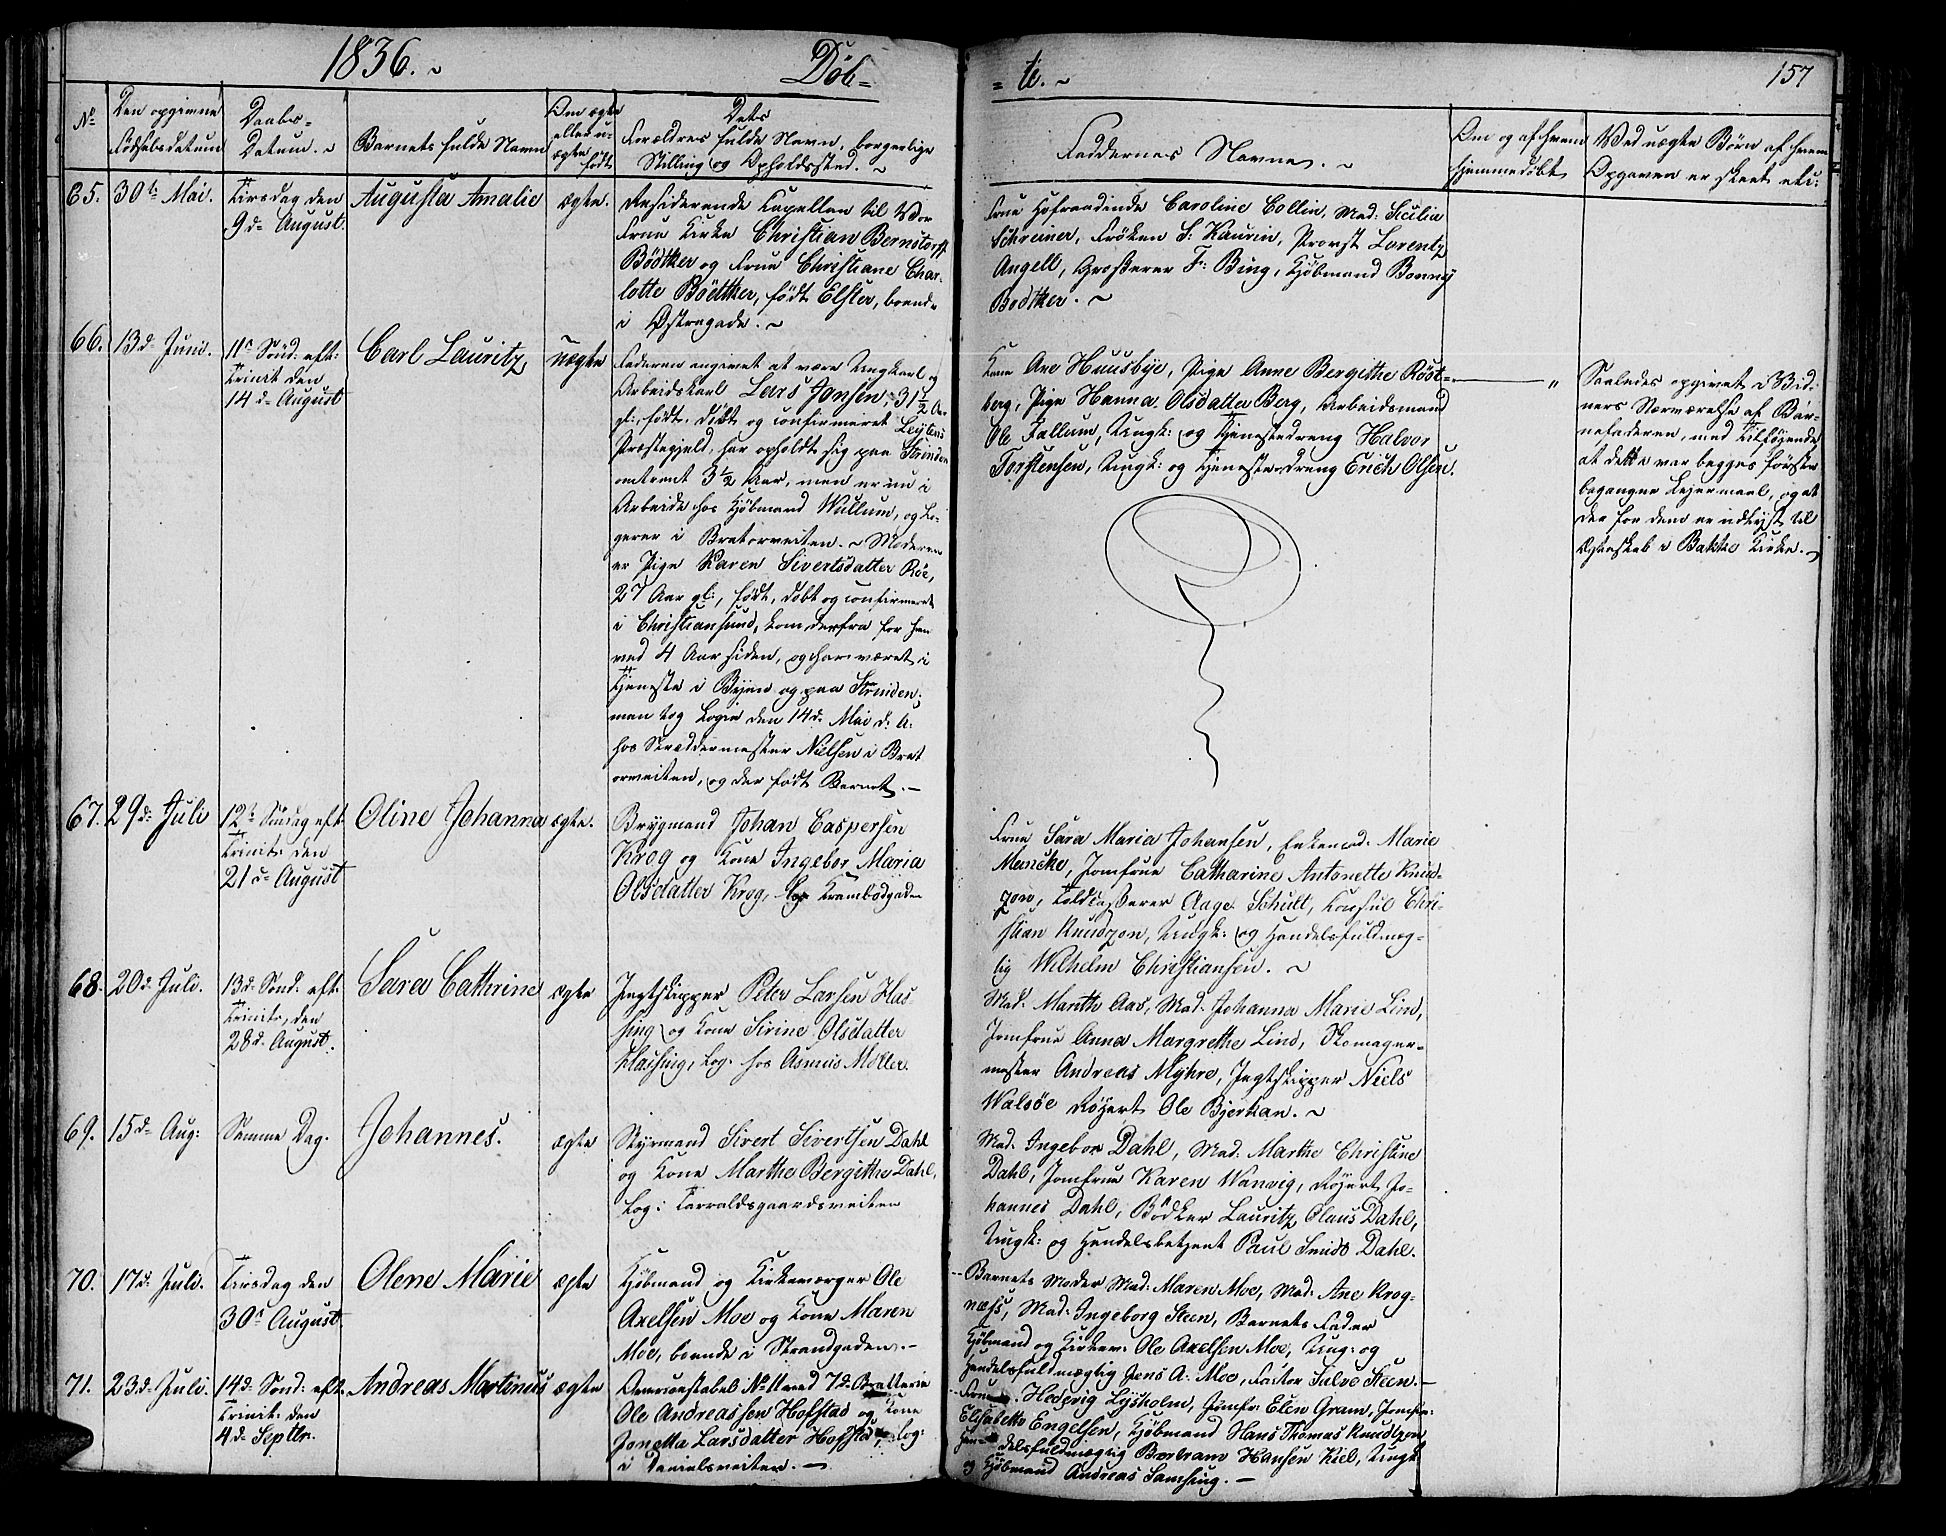 1836. ~ Döb=
= te. ~ 157
No
Den opgivne
Fødselsdatum
Daabs-
Datum. ~
Barnets fulde Navn
Om ægte
eller u-
ægte
født
Dets
Forældres fulde Navn, borgerlige
Stilling og Opholdssted. ~
Faddernes Navne. ~
Om og af hvem
hjemmedøbt
Ved uægte Børn af hvem
Opgaven er skeet etc:
65. 30te Mai.
Tirsdag den
9d= August.
Augusta Amalie
ægte.
Residerende Capellan til Vor
Frue Kirke Christian Bernstorff
Bödtker og Frue Christiane Char-
lotte Böettker, født Elster, boende
i Østregade. ~
Frue Hofraadinde Caroline Collin, Mad: Sicilia
Schreiner, Frøken S: Kaurin, Provst Lorentz
Angell, Grosserer F: Bing, Kjöbmand Bonny
Bodtker. ~
66. 13d= Juni.
11te Sönd: eft:
Trinit den
14d= August
Carl Lauritz
uægte
Faderen angivet at være Ungkarl og
Arbeidskarl Lars Jonsen, 31½ Aar
gl:, født, döbt og confirmeret
Præstegjeld, har opholdt sig paa Strinden
omtrent 3½ Aar, men er nu i
Arbeide hos Kjöbmand Wullum, og lo-
gerer i Bratörveiten. ~ Moderen
er Pige Karen Sivertsdatter Röe,
27 Aar gl:, født, döbt og confirmeret
i Christiansund, kom derfra for hen
ved 4 Aar siden, og har været i
Tjeneste i Byen og paa Strinden,
men tog Logie den 14d= Mai d: A:
hos Skræddermester Nielsen i Brat
örveiten, og der født Barnet. ~
Kone Ane Huusbye, Pige Anne Bergithe Röst-
berg, Pige Hanna Olsdatter Berg, Arbeidsmand
Ole Fallum, Ungk: og Tjenestedreng Halvor
Torstensen, Ungk: og Tjenestedreng Erich Olsen.
"
Saaledes opgivet i Vid-
ners Nærværelse af Bar-
nefaderen, med Tilföjende
at dette var begges første
begangne Leiermaal, og at
der for dem er udlyst til
Ægteskab i Bakke Kirke. ~
67. 29d= Juli
12te Söndag eft
Trinit: den
21d= August
Oline Johanna
ægte.
Brygmand Johan Caspersen
Krog og Kone Ingebor Maria
Olsdatter Krog, Log Krambodgaden
Frue Sara Maria Johansen, Enkemad: Marie
Mencke, Jomfrue Catharine Antonette Knud-
zon, Toldcasserer Aage Schult, Consul Chri-
stian Knudzon, Ungk: og Handelsfuldmæg-
tig Wilhelm Christiansen. ~
68. 20d= Juli.
13d= Sönd: eft:
Trinit:, den
28d= August.
Sara Cathrine
ægte
Jegtskipper Peter Larsen Has-
sing og Kone Sirine Olsdatter
Hassing, Log: hos Asmus Möller.
Mad: Marith Aas, Mad: Johanna Marie Lind,
Jomfrue Anna Margrethe Lind, Skomager-
mester Andreas Myhre, Jegtskipper Niels
Walsöe Röyert Ole Bjerkan. ~
69. 15d= Aug:
Samme Dag.
Johannes.
ægte
Styrmand Sivert Sivertsen Dahl
og Kone Marthe Bergitha Dahl,
Log: Tarraldsgaardsveiten
Mad: Ingebor Dahl, Mad: Marthe Christine
Dahl, Jomfrue Karen Wanvig, Röyert Jo-
hannes Dahl, Bödker Lauritz Claus Dahl,
Ungk: og Handelsbetjent Paul Smidt Dahl.
70. 17d= Juli.
Tirsdag den
30te August.
Olene Marie
ægte
Kjöbmand og Kirkeværger Ole
Axelsen Moe og Kone Maren
Moe, boende i Strandgaden. ~
Barnets Moder Mad: Maren Moe, Mad: Ane Krog-
næss, Mad: Ingeborg Steen, Barnets Fader
Kjöbmand og Kirkev: Ole Axelsen Moe, Ung: og
Handelsfuldmægtig Jens A: Moe, Factor Salve Steen. ~
71. 23d= Juli.
14d= Sönd: eft
Trinit: den
4d= Septbr.
Andreas Martinus
ægte
Overconstabel No 11 ved 7d= Batterie
Ole Andreassen Hofstad og Kone
Jonetta Larsdatter Hofstad, Log:
i Danielsveiten. ~
Frue Hedevig Lysholm, Jomfr: Elen Gram, Jomfr:
Elisabeth Engelsen, Kjöbmand Hans Thomas Knudtzon,
Handelsfuldmægtig Bertram Hansen Kiel, Ungk:
og Kjöbmand Andreas Lamsing. ~